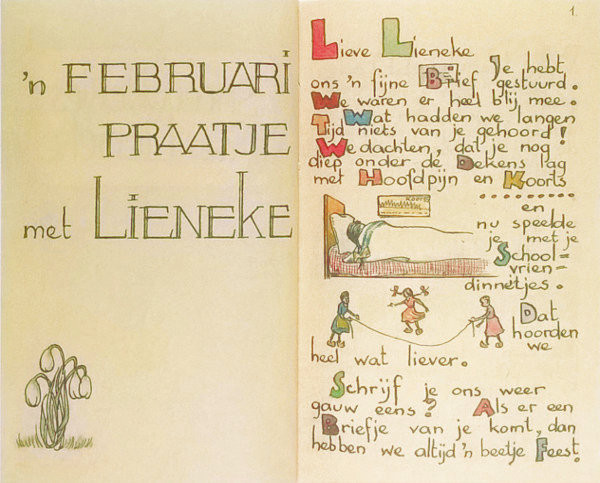 'n FEBRUARI
PRAATJE
met LIENEKE
1.
Lieve Lieneke
Je hebt
ons 'n fijne Brief gestuurd.
We waren er heel blij mee.
Wat hadden we langen
Tijd niets van je gehoord!
We dachten, dat je nog
diep onder de Dekens lag
met Hoofdpijn en Koorts
........ en
KOORTS
nu speelde
je met je
School=
vrien=
dinnetjes.
Dat
hoorden
we
heel wat liever.
Schrijf je ons weer
gauw eens? Als er een
Briefje van je komt, dan
hebben we altijd 'n beetje Feest!